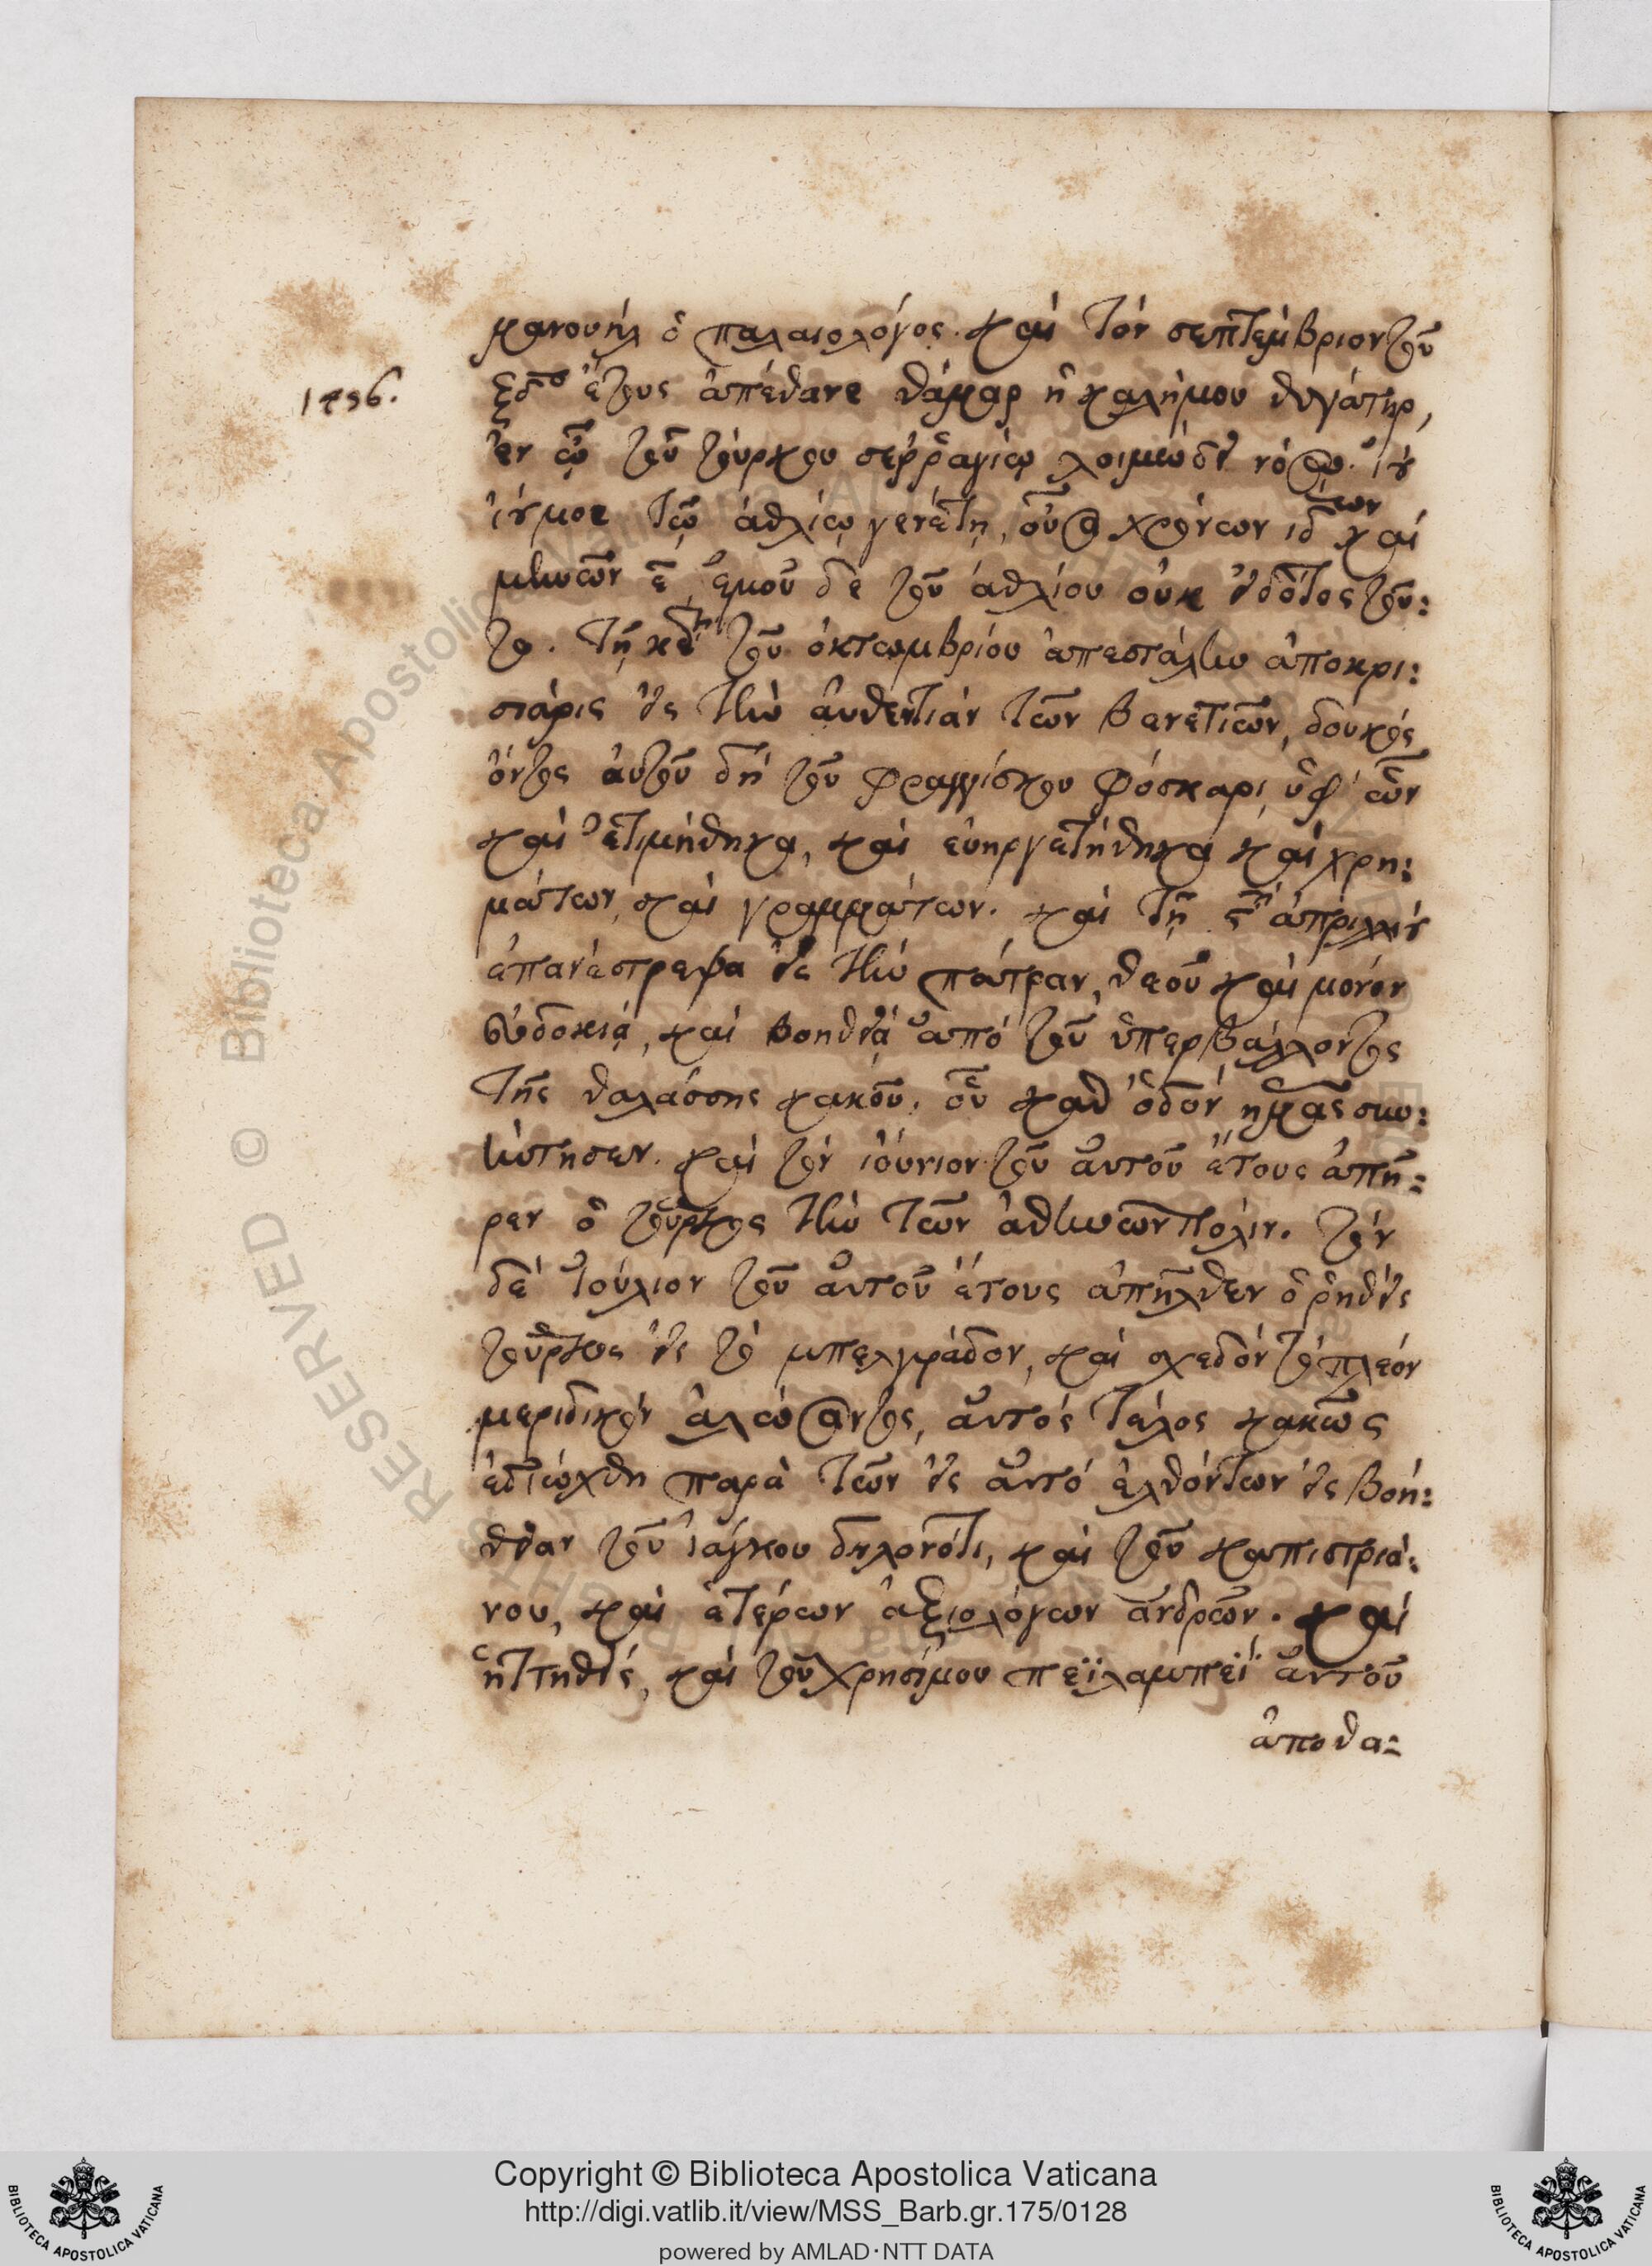 μανουὴλ ὁ παλαιολόγος. καὶ τὸν σεπτέμβριον τοῦ
1456.
ξδου ἔτους ἀπέθανε θάμαρ ἡ καλήμου θυγάτηρ,
ἐν τῷ τοῦ τούρκου σεῤῥαγίῳ λοιμώδει νόσῳ.
εἴμοι τῷ ἀθλίῳ γενέτῃ, οὖσα χρόνων ιδ των καὶ
μηνῶν ε, ἐμοῦ δὲ τοῦ ἀθλίου οὐκ εἰδότος τοῦ:
το. τῇ κδῃ τοῦ ὀκτωμβρίου ἀπεστάλην ἀποκρι:
σιάρις εἰς τὴν αὐθεντιὰν τῶν βενετικῶν, δουκὸς
ὄντος αὐτοῦ δὴ τοῦ φραγγίσκου φόσκαρι, ὑφ' ὧν
καὶ ἐτιμήθηκα, καὶ εὐηργετήθηκα καὶ χρη:
μάτων, καὶ γραμμάτων. καὶ τῇ ςῃ ἀπριλλίου
ἐπανέστρεψα εἰς τὴν πάτραν, θεοῦ καὶ μόνον
εὐδοκιᾷ, καὶ βοηθείᾳ ἀπὸ τοῦ ὑπερβάλλοντος
τῆς θαλάσσης κακοῦ, οὗ καθ' ὁδὸν ἡμᾶς συν:
ήντησεν. καὶ τὸν ἰούνιον τοῦ αὐτοῦ ἔτους ἀπῆ:
ρεν ὁ τοῦρκος τὴν τῶν ἀθηνῶν πόλιν. τὸν
δὲ ἰούλιον τοῦ αὐτοῦ ἔτους ἀπῆλθεν ὁ ῥηθεὶς
τοῦρκος εἰς τὸ μπελγράδον, καὶ σχεδὸν τὸ πλέον
μεριδικὸν ἁλώσαντος, αὐτὸς τέλος κακῶς
ἐδιώχθη παρὰ τῶν εἰς αὐτὸ ἐλθόντων εἰς βοή:
θειαν τοῦ ἰάγκου δηλονότι, καὶ τοῦ καπιστριά:
νου, καὶ ἑτέρων ἀξιολόγων ἀνδρῶν. καὶ
ἡττηθεὶς, καὶ τοῦ χρησίμου πεϊλαμπεῒ αὐτοῦ
ἀποθα:
Copyright © Biblioteca Apostolica Vaticana
http://digi.vatlib.it/view/MSS_Barb.gr.175/0128
powered by AMLAD·NTT DATA